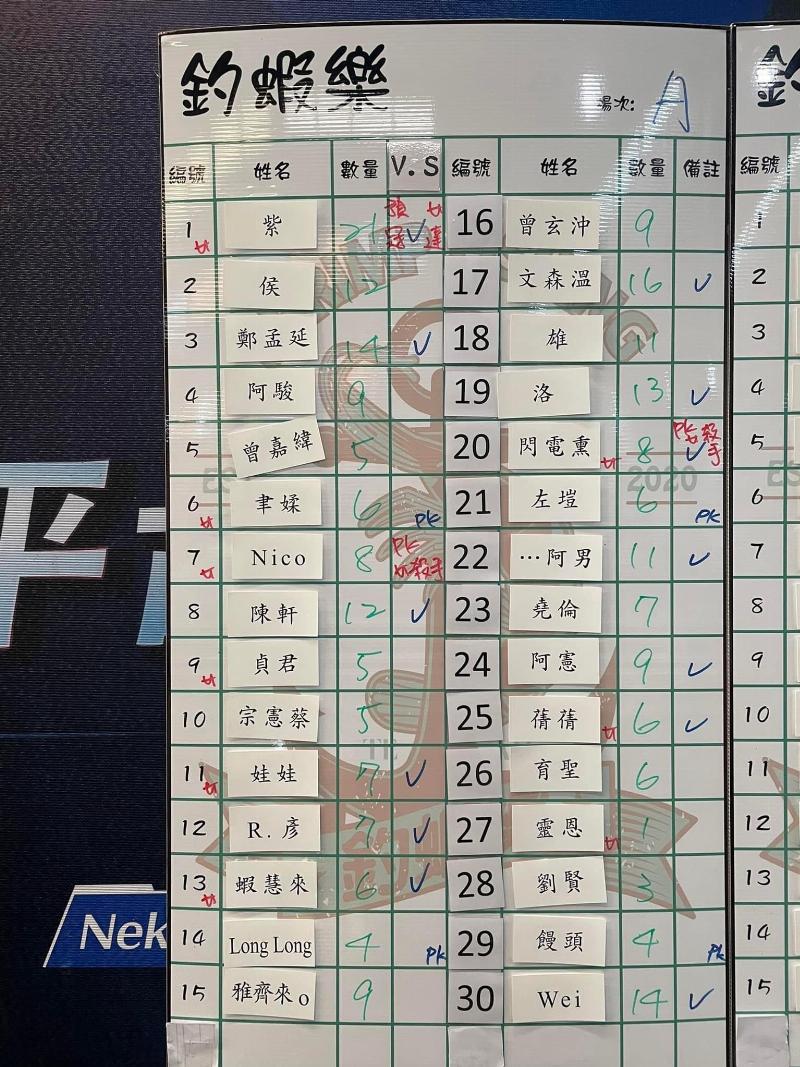 釣蝦樂
場次: A
編號 姓名 數量 V.S 編號 姓名 數量 備註
1 女 紫 21 預冠 ✓ 女達 16 曾玄沖 9
2 侯 12 17 文森溫 16 ✓
3 鄭孟延 14 ✓ 18 雄 11
4 阿駿 9 19 洛 13 ✓
5 曾嘉緯 5 20 閃電熏 女 8 PK 女殺手 ✓
6 女 聿媃 6 PK 21 左塏 6 PK
7 女 Nico 8 PK 女殺手 22 …阿男 11 ✓
8 陳軒 12 ✓ 23 堯倫 7
9 女 貞君 5 24 阿憲 9 ✓
10 宗憲蔡 5 25 蒨蒨 女 6 ✓
11 女 娃娃 7 ✓ 26 育聖 6
12 R.彥 7 ✓ 27 靈恩 女 1
13 女 蝦慧來 6 ✓ 28 劉賢 3
14 Long Long 4 PK 29 饅頭 4 PK
15 雅齊來o 9 30 Wei 14 ✓
編號
1
2
3
4
5
6
7
8
9
10
11
12
13
14
15
2020
平
Nek